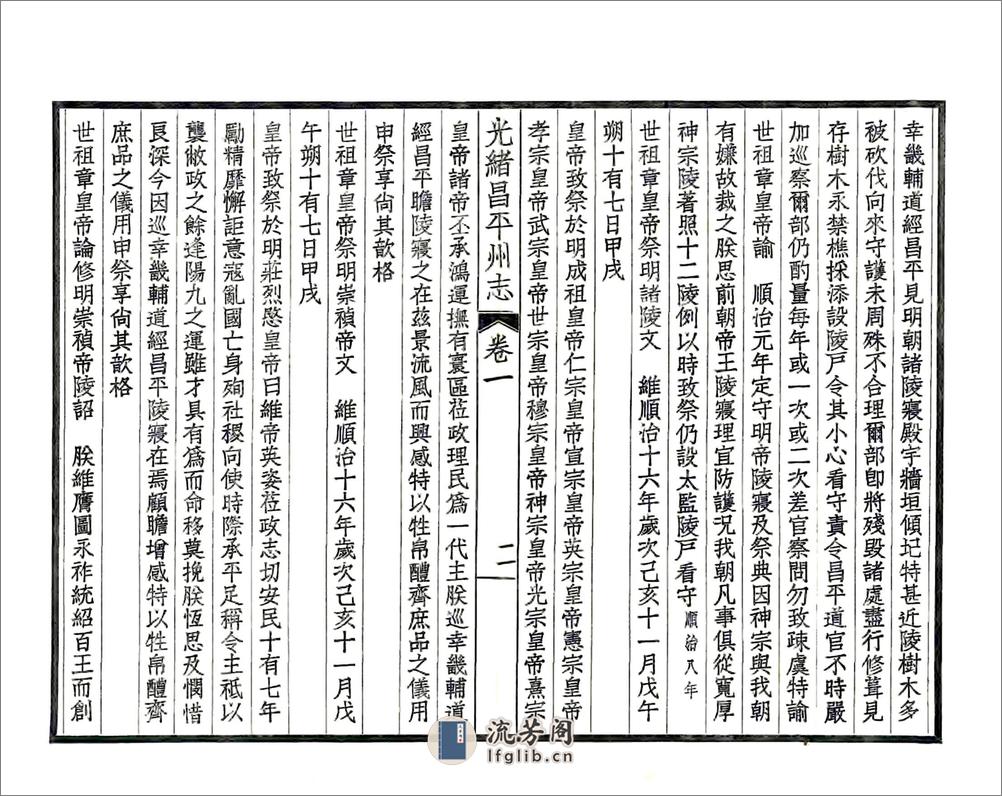 幸畿輔道經昌平見明朝諸陵寢殿宇牆垣傾圮特甚近陵樹木多
被砍伐向來守護未周殊不合理爾部卽將殘毀諸處盡行修葺見
存樹木永禁樵採添設陵戸令其小心看守責令昌平道官不時嚴
加巡察爾部仍酌量每年或一次或二次差官察問勿致疎虞特諭
世祖章皇帝諭　順治元年定守明帝陵寢及祭典因神宗與我朝
有嫌故裁之朕思前朝帝王陵寢理宜防護况我朝凡事俱從寬厚
神宗陵著照十二陵例以時致祭仍設太監陵戸看守順治八年
世祖章皇帝祭明諸陵文　維順治十六年歲次己亥十一月戊午
朔十有七日甲戌
皇帝致祭於明成祖皇帝仁宗皇帝宣宗皇帝英宗皇帝憲宗皇帝
孝宗皇帝武宗皇帝世宗皇帝穆宗皇帝神宗皇帝光宗皇帝熹宗
光緒昌平州志　卷一　二
皇帝諸帝丕承鴻運撫有寰區莅政理民爲一代主朕巡幸畿輔道
經昌平瞻陵寢之在茲景流風而興感特以牲帛醴齊庶品之儀用
申祭享尙其歆格
世祖章皇帝祭明崇禎帝文　維順治十六年歲次己亥十一月戊
午朔十有七日甲戌
皇帝致祭於明莊烈愍皇帝曰維帝英姿莅政志切安民十有七年
勵精靡懈詎意寇亂國亡身殉社稷向使時際承平足稱令主祗以
襲敝政之餘逢陽九之運雖才具有爲而命移莫挽朕恆思及憫惜
良深今因巡幸畿輔道經昌平陵寢在焉顧瞻增感特以牲帛醴齊
庶品之儀用申祭享尙其歆格
世祖章皇帝論修明崇禎帝陵詔　朕維膺圖永祚統紹百王而創
流芳阁
lfglib.cn